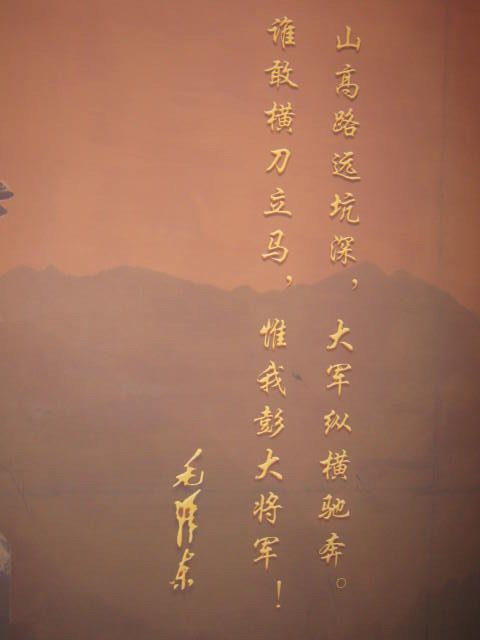 山高路远坑深，大军纵横驰奔。
谁敢横刀立马，惟我彭大将军！
毛泽东